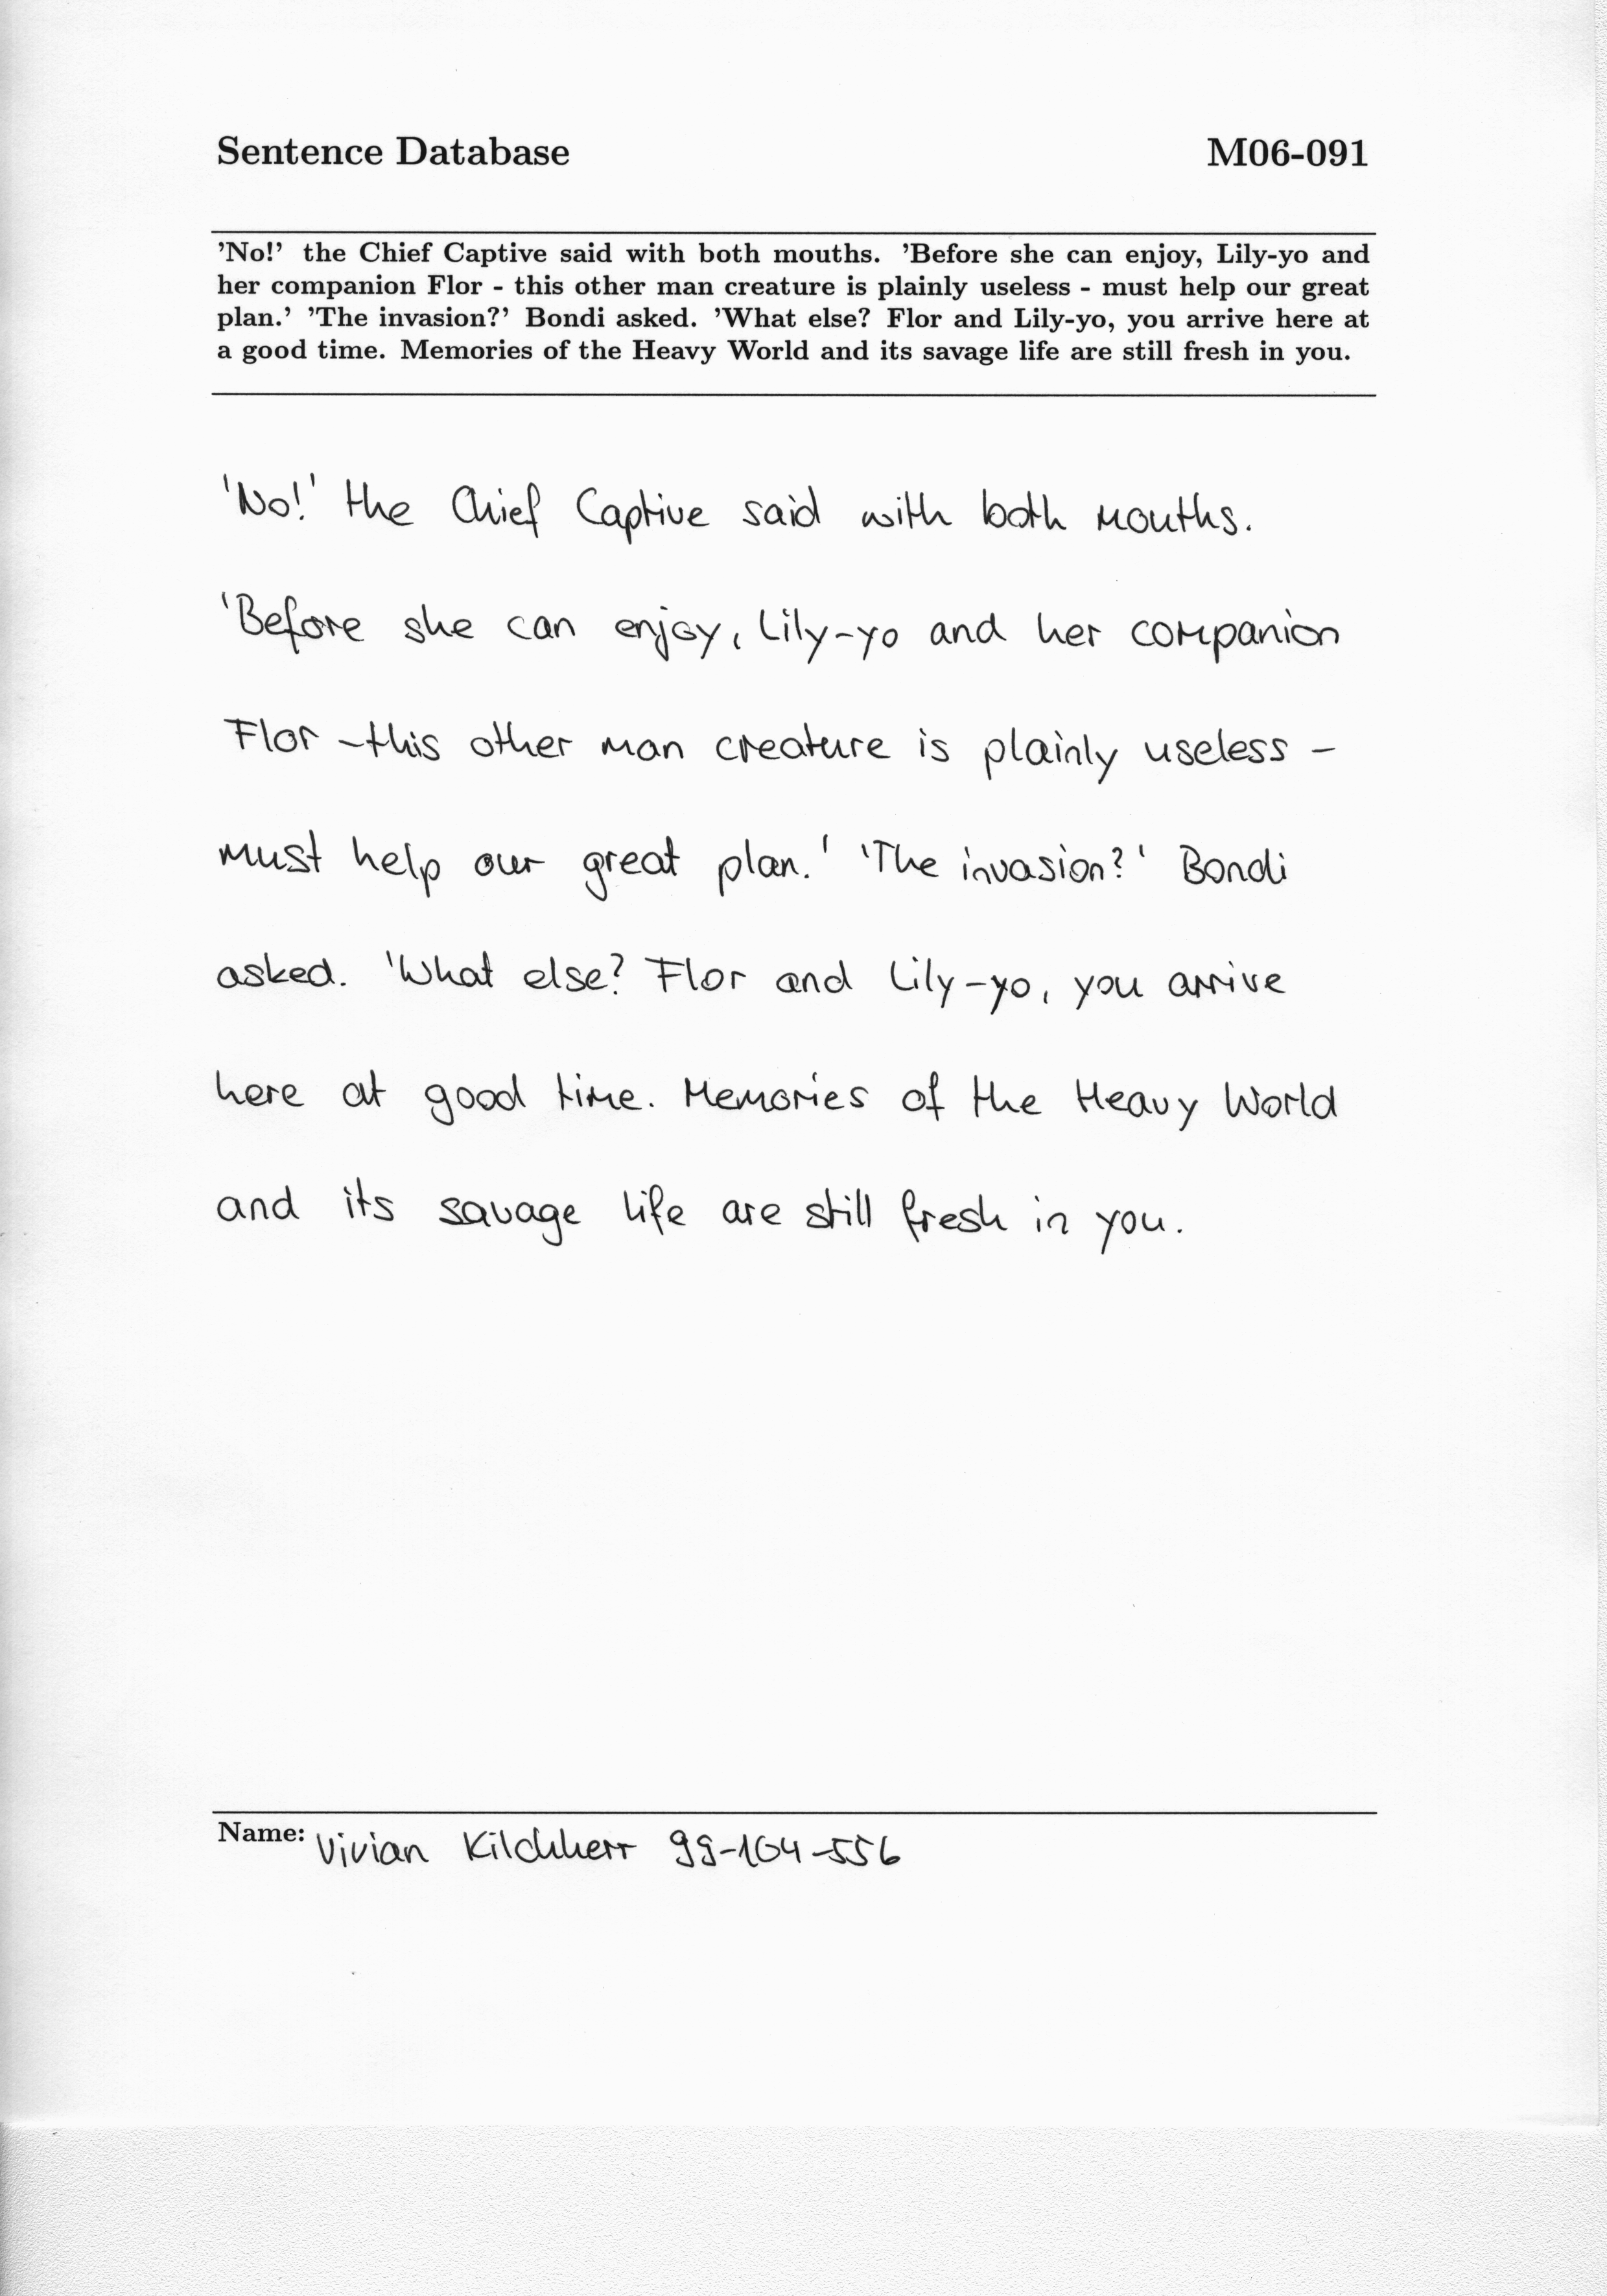 Sentence Database M06-091
'No!' the Chief Captive said with both mouths. 'Before she can enjoy, Lily-yo and
her companion Flor - this other man creature is plainly useless - must help our great
plan.' 'The invasion?' Bondi asked. 'What else? Flor and Lily-yo, you arrive here at
a good time. Memories of the Heavy World and its savage life are still fresh in you.
'No!' the Chief Captive said with both mouths.
'Before she can enjoy, Lily-yo and her companion
Flor - this other man creature is plainly useless -
must help our great plan.' 'The invasion?' Bondi
asked. 'What else? Flor and Lily-yo, you arrive
here at good time. Memories of the Heavy World
and its savage life are still fresh in you.
Name: Vivian Kilchherr 99-104-556